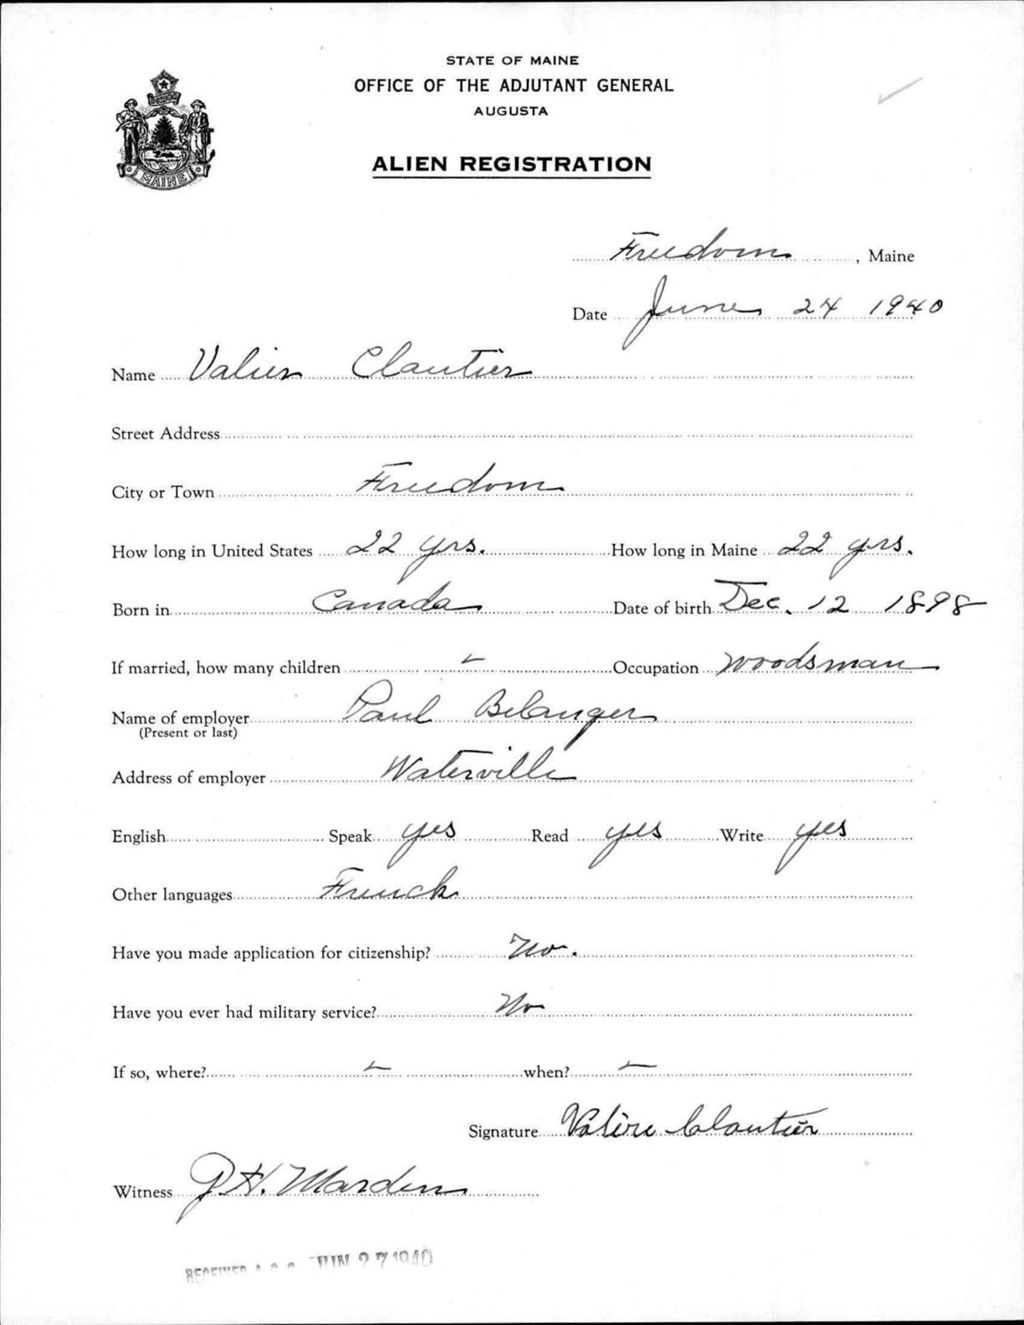 STATE OF MAINE
OFFICE OF THE ADJUTANT GENERAL
AUGUSTA
MAINE
ALIEN REGISTRATION
Freedom, Maine
Date June 24 1940
Name Valier Cloutier
Street Address
City or Town Freedom
How long in United States 22 yrs. How long in Maine 22 yrs.
Born in Canada Date of birth Dec. 12 1898
If married, how many children Occupation woodsman
Name of employer Paul Belanger
(Present or last)
Address of employer Waterville
English Speak yes Read yes Write yes
Other languages French
Have you made application for citizenship? No.
Have you ever had military service? No
If so, where? - when? -
Signature Valère Cloutier
Witness Marden
RECEIVED JUN 27 1940